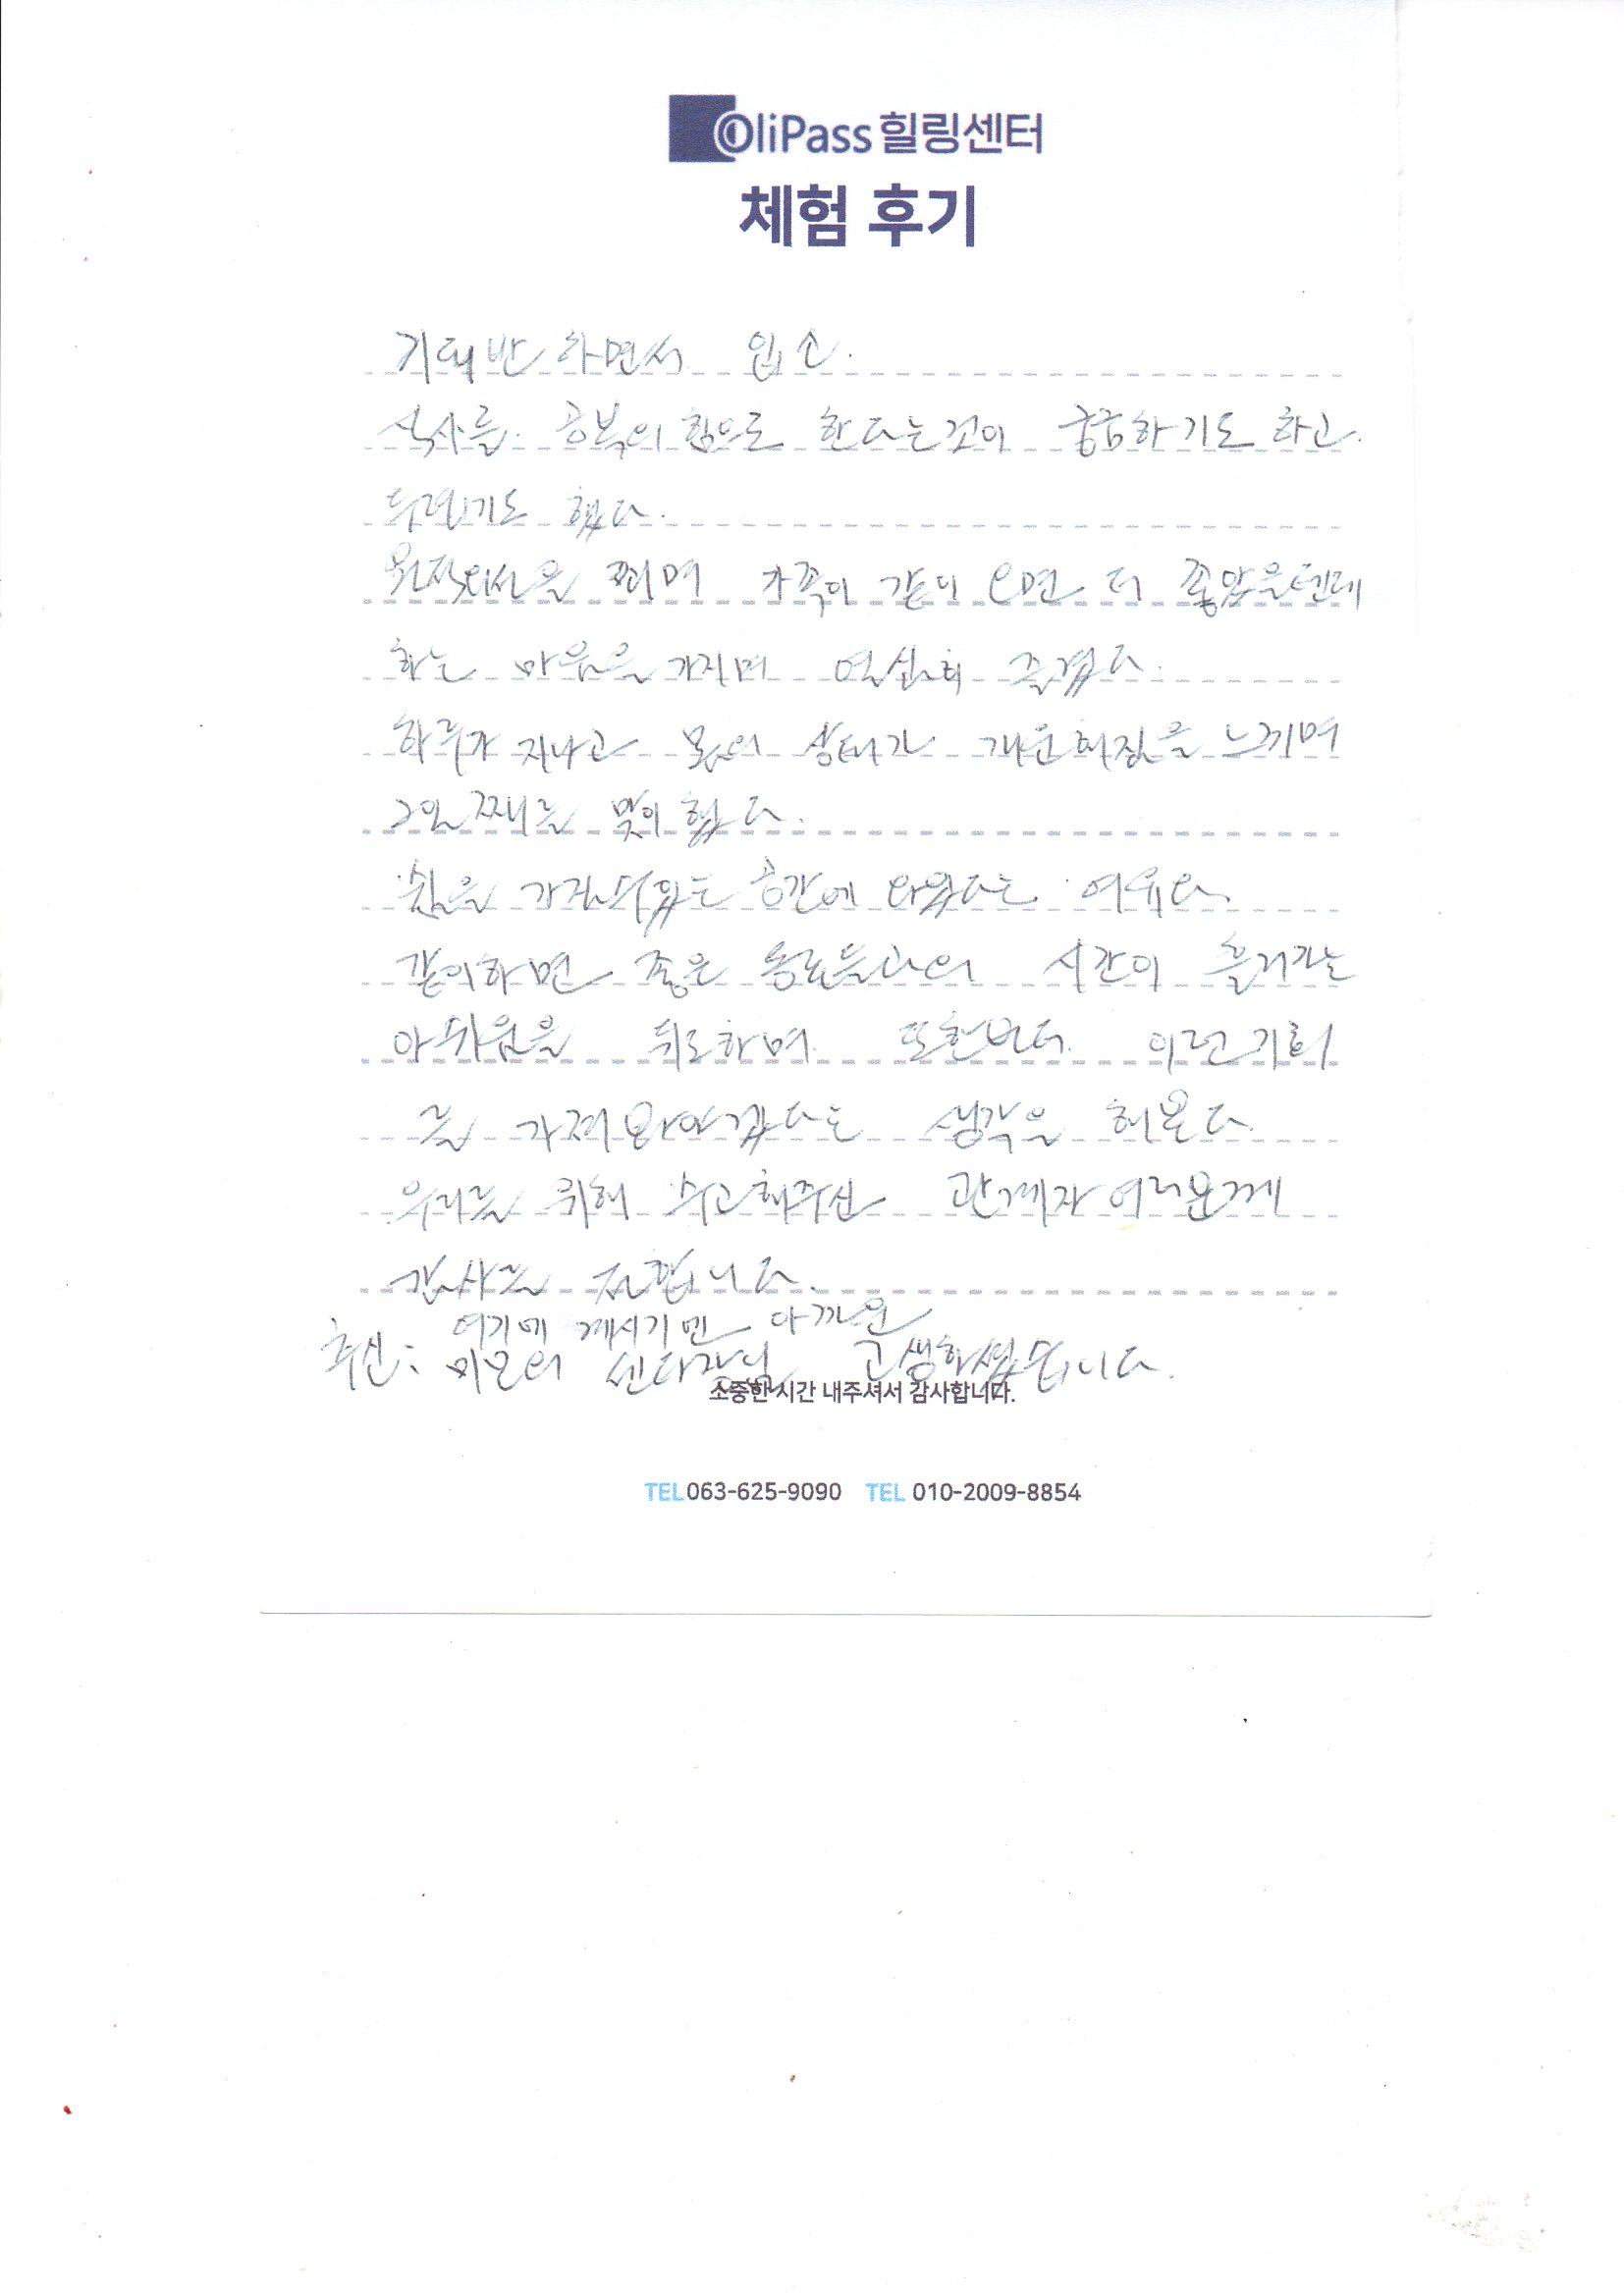 OliPass 힐링센터
체험 후기
기대반 하면서 입소.
식사를 공복의 힘으로 한다는것이 궁금하기도 하고.
두렵기도 했다.
원적외선을 쬐며 가족이 같이 오면 더 좋았을텐데
하는 마음을 가지며 열심히 즐겼다.
하루가 지나고 몸의 상태가 개운해짐을 느끼며
2일째를 맞이했다.
쉼을 가질수있는 공간에 와있다는 여유다.
같이하면 좋은 동료들과의 시간이 흘러가는
아쉬움을 뒤로하며 또한번더 이런기회
를 가져와야겠다는 생각을 해본다.
우리를 위해 수고해주신 관계자여러분께
감사를 전합니다.
추신: 여기에 계시기엔 아까운
미모의 센타장님 고생하셨습니다.
소중한 시간 내주셔서 감사합니다.
TEL 063-625-9090 TEL 010-2009-8854